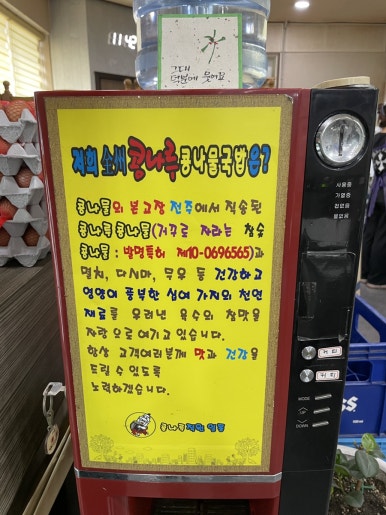 11:42
그대
덕분에 웃어요
저희 소씨 콩나루 콩나물국밥은?
콩나물의 본고장 전주에서 직송된
콩나루 콩나물(거꾸로 자라는 참숯
콩나물 : 발명특허 제10-0696565)과
멸치, 다시마, 무우 등 건강하고
영양이 풍부한 십여 가지의 천연
재료를 우려낸 육수의 참맛을
자랑으로 여기고 있습니다.
항상 고객여러분께 맛과 건강을
드릴 수 있도록
노력하겠습니다.
콩나루 직원 일동
사용중
가열중
컵없음
물없음
커피
커피
MODE
UP
DOWN